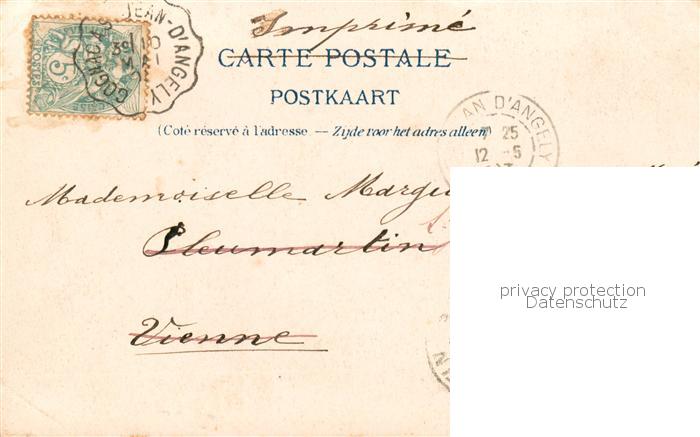 Imprimé
CARTE POSTALE
POSTKAART
(Coté réservé à l'adresse — Zijde voor het adres alleen)
JEAN-D'ANGELY
COGNAC
POSTES
5
AN D'ANGELY
25
12 -5
Mademoiselle
Pleumartin
Vienne
privacy protection
Datenschutz